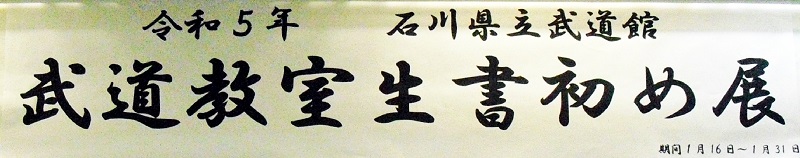 令和5年 石川県立武道館
武道教室生書初め展
期间1月16日～1月31日